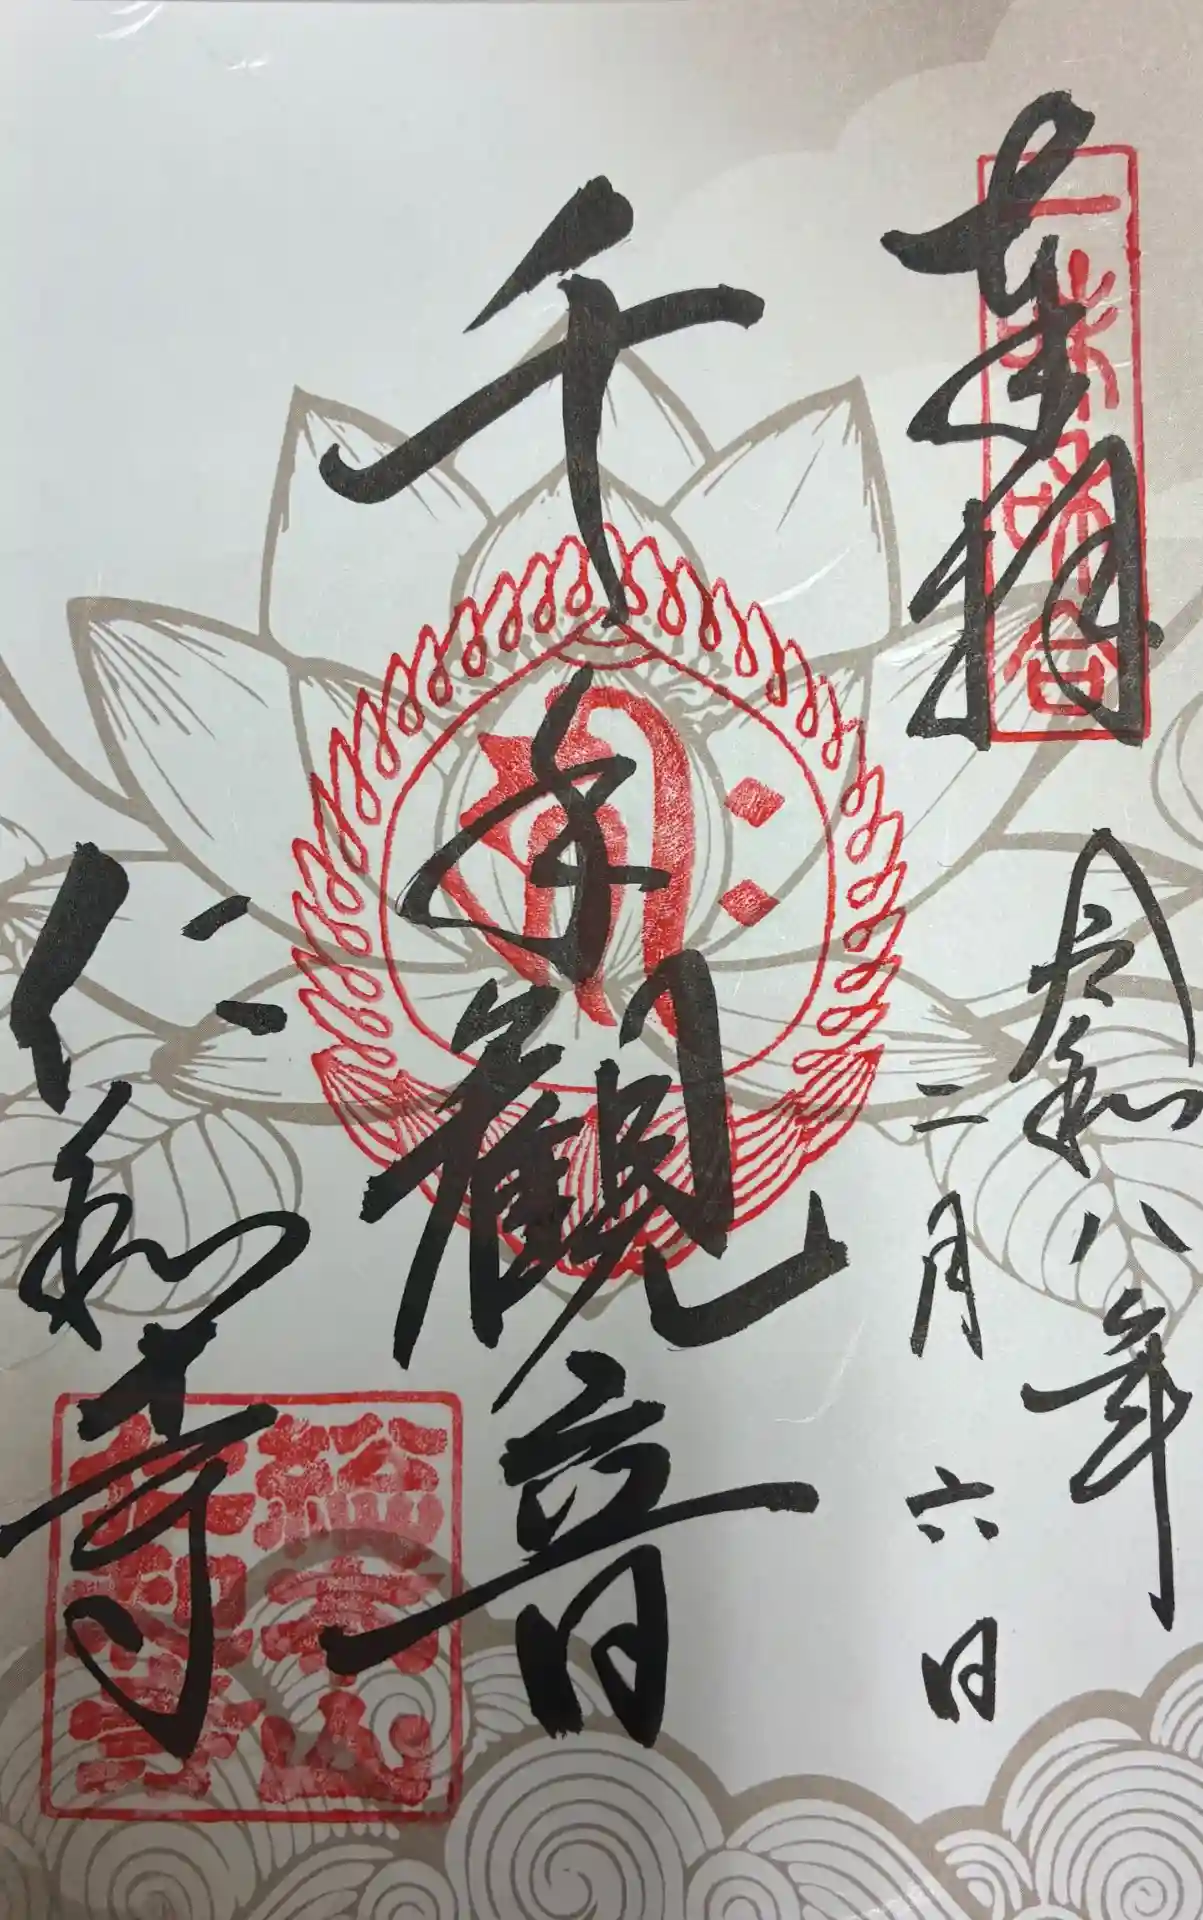 奉拝
令和八年
二月六日
千手観音
仁和寺